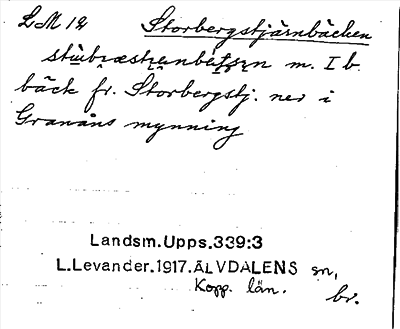 LM 12 Storbergstjärnbäcken
m. I b.
bäck fr. Storbergstj. ner i
Granåns mynning
Landsm.Upps.339:3
L.Levander.1917.ÄLVDALENS sn,
Kopp. län.
br.